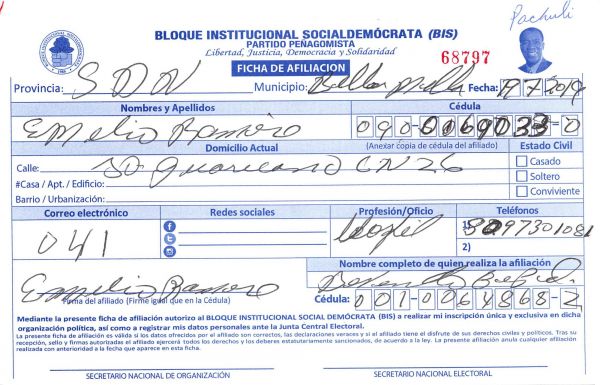 Pachuli
BLOQUE INSTITUCIONAL SOCIALDEMÓCRATA (BIS)
PARTIDO PEÑAGOMISTA
Libertad, Justicia, Democracia y Solidaridad
68797
FICHA DE AFILIACION
Provincia: SDN Municipio: Fecha:
Nombres y Apellidos Cédula
Emelio Ramiro 090-0169033-0
Domicilio Actual (Anexar copia de cédula del afiliado) Estado Civil
Calle: Guaricano CN 26 Casado
#Casa / Apt. / Edificio: Soltero
Barrio / Urbanización: Conviviente
Correo electrónico Redes sociales Profesión/Oficio Teléfonos
041 1) 8097301081
2)
Nombre completo de quien realiza la afiliación
Emilio Ramiro
Firma del afiliado (Firme igual que en la Cédula) Cédula: 001-0064868-2
Mediante la presente ficha de afiliación autorizo al BLOQUE INSTITUCIONAL SOCIAL DEMÓCRATA (BIS) a realizar mi inscripción única y exclusiva en dicha
organización política, así como a registrar mis datos personales ante la Junta Central Electoral.
La presente ficha de afiliación es válida si los datos ofrecidos por el afiliado son correctos, las declaraciones veraces y si el afiliado tiene el disfrute de sus derechos civiles y políticos. Tras su
recepción, sello y firmas autorizadas el afiliado ejercerá todos los derechos y los deberes estatutariamente sancionados, de acuerdo a la ley. La presente afiliación anula cualquier afiliación
realizada con anterioridad a la fecha que aparece en esta ficha.
SECRETARIO NACIONAL DE ORGANIZACIÓN SECRETARIO NACIONAL ELECTORAL